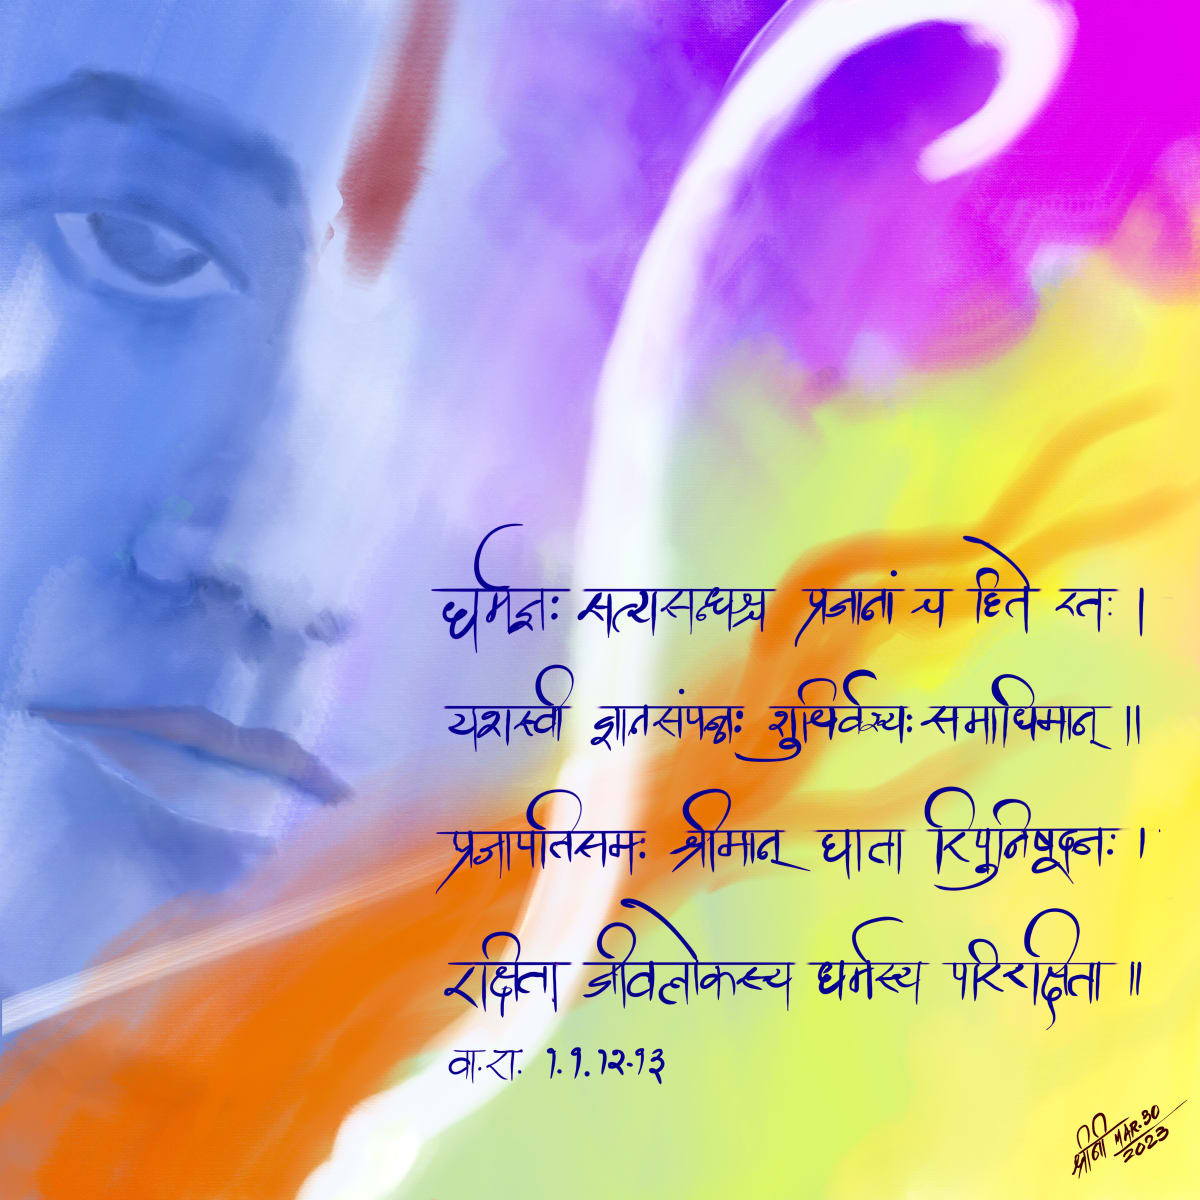 धर्मज्ञः सत्यसन्धश्च प्रजानां च हिते रतः ।
यशस्वी ज्ञानसंपन्नः शुचिर्वश्यः समाधिमान् ॥
प्रजापतिसमः श्रीमान् धाता रिपुनिषूदनः ।
रक्षिता जीवलोकस्य धर्मस्य परिरक्षिता ॥
वा.रा. १.१.१२-१३
श्रीनी MAR.30
2023